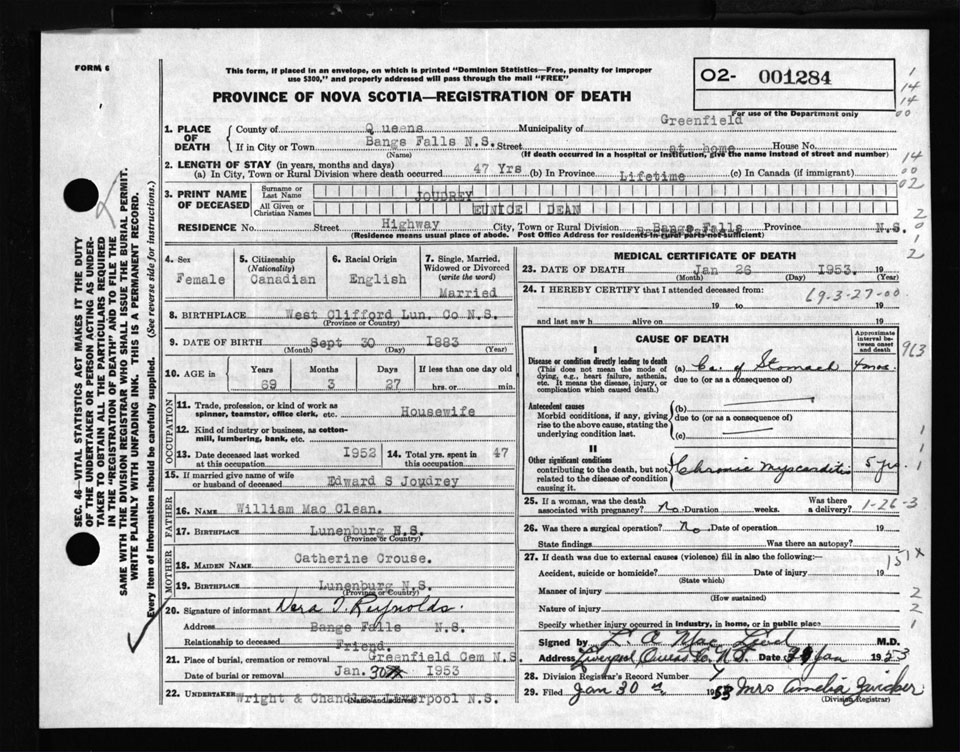 FORM 6
This form, if placed in an envelope, on which is printed "Dominion Statistics—Free, penalty for improper
use $300," and properly addressed will pass through the mail "FREE"
PROVINCE OF NOVA SCOTIA—REGISTRATION OF DEATH
O2- 001284
For use of the Department only
1
14
14
00
14
00
02
2
0
1
2
SEC. 46—VITAL STATISTICS ACT MAKES IT THE DUTY
OF THE UNDERTAKER OR PERSON ACTING AS UNDER-
TAKER TO OBTAIN ALL THE PARTICULARS REQUIRED
IN THE "REGISTRATION OF DEATH" AND TO FILE THE
SAME WITH THE DIVISION REGISTRAR WHO SHALL ISSUE THE BURIAL PERMIT.
WRITE PLAINLY WITH UNFADING INK. THIS IS A PERMANENT RECORD.
Every item of information should be carefully supplied. (See reverse side for instructions.)
1. PLACE OF DEATH County of Queens Municipality of Greenfield
If in City or Town Bangs Falls N.S. Street at home House No.
(Name) (If death occurred in a hospital or institution, give the name instead of street and number)
2. LENGTH OF STAY (in years, months and days)
(a) In City, Town or Rural Division where death occurred 47 Yrs (b) In Province Lifetime (c) In Canada (if immigrant)
3. PRINT NAME OF DECEASED Surname or Last Name JOUDREY
All Given or Christian Names EUNICE DEAN
RESIDENCE No. Street Highway City, Town or Rural Division Bangs Falls Province N.S.
(Residence means usual place of abode. Post Office Address for residents in rural parts not sufficient)
4. Sex Female
5. Citizenship (Nationality) Canadian
6. Racial Origin English
7. Single, Married, Widowed or Divorced (write the word) Married
8. BIRTHPLACE West Clifford Lun. Co N.S.
(Province or Country)
9. DATE OF BIRTH Sept 30 1883
(Month) (Day) (Year)
10. AGE in Years 69 Months 3 Days 27 If less than one day old hrs. or min.
OCCUPATION
11. Trade, profession, or kind of work as
spinner, teamster, office clerk, etc. Housewife
12. Kind of industry or business, as cotton-
mill, lumbering, bank, etc.
13. Date deceased last worked at this occupation 1952 14. Total yrs. spent in this occupation 47
15. If married give name of wife or husband of deceased Edward S Joudrey
FATHER
16. NAME William Mac Clean.
17. BIRTHPLACE Lunenburg N.S.
(Province or Country)
MOTHER
18. MAIDEN NAME Catherine Crouse.
19. BIRTHPLACE Lunenburg N.S.
(Province or Country)
20. Signature of informant Vera I. Reynolds.
Address Bangs Falls N.S.
Relationship to deceased Friend.
21. Place of burial, cremation or removal Greenfield Cem N.S.
Date of burial or removal Jan. 30 1953
22. UNDERTAKER Wright & Chandler Liverpool N.S.
(Name and address)
MEDICAL CERTIFICATE OF DEATH
23. DATE OF DEATH Jan 26 1953. 19
(Month) (Day) (Year)
24. I HEREBY CERTIFY that I attended deceased from:
69-3-27-00
19 to 19
and last saw h alive on 19
CAUSE OF DEATH
Approximate interval between onset and death
963
I
Disease or condition directly leading to death
(This does not mean the mode of dying, e.g., heart failure, asthenia, etc. It means the disease, injury, or complication which caused death.)
(a) Ca. of Stomach 4 mos.
due to (or as a consequence of)
Antecedent causes
Morbid conditions, if any, giving rise to the above cause, stating the underlying condition last.
(b)
due to (or as a consequence of)
(c)
II
Other significant conditions
contributing to the death, but not related to the disease or condition causing it.
Chronic myocarditis 5 yrs.
1
1
25. If a woman, was the death associated with pregnancy? No Duration weeks. Was there a delivery?
1-26-3
26. Was there a surgical operation? No Date of operation
State findings Was there an autopsy?
27. If death was due to external causes (violence) fill in also the following:
151x
Accident, suicide or homicide? Date of injury 19
(State which)
Manner of injury 2
(How sustained)
Nature of injury 2
Specify whether injury occurred in industry, in home, or in public place 1
Signed by L. A. Mac Leod M.D.
Address Liverpool Queens Co. N.S. Date Jan 1953
28. Division Registrar's Record Number
29. Filed Jan 30th 1953 Mrs Amelia Zwicker
(Division Registrar)